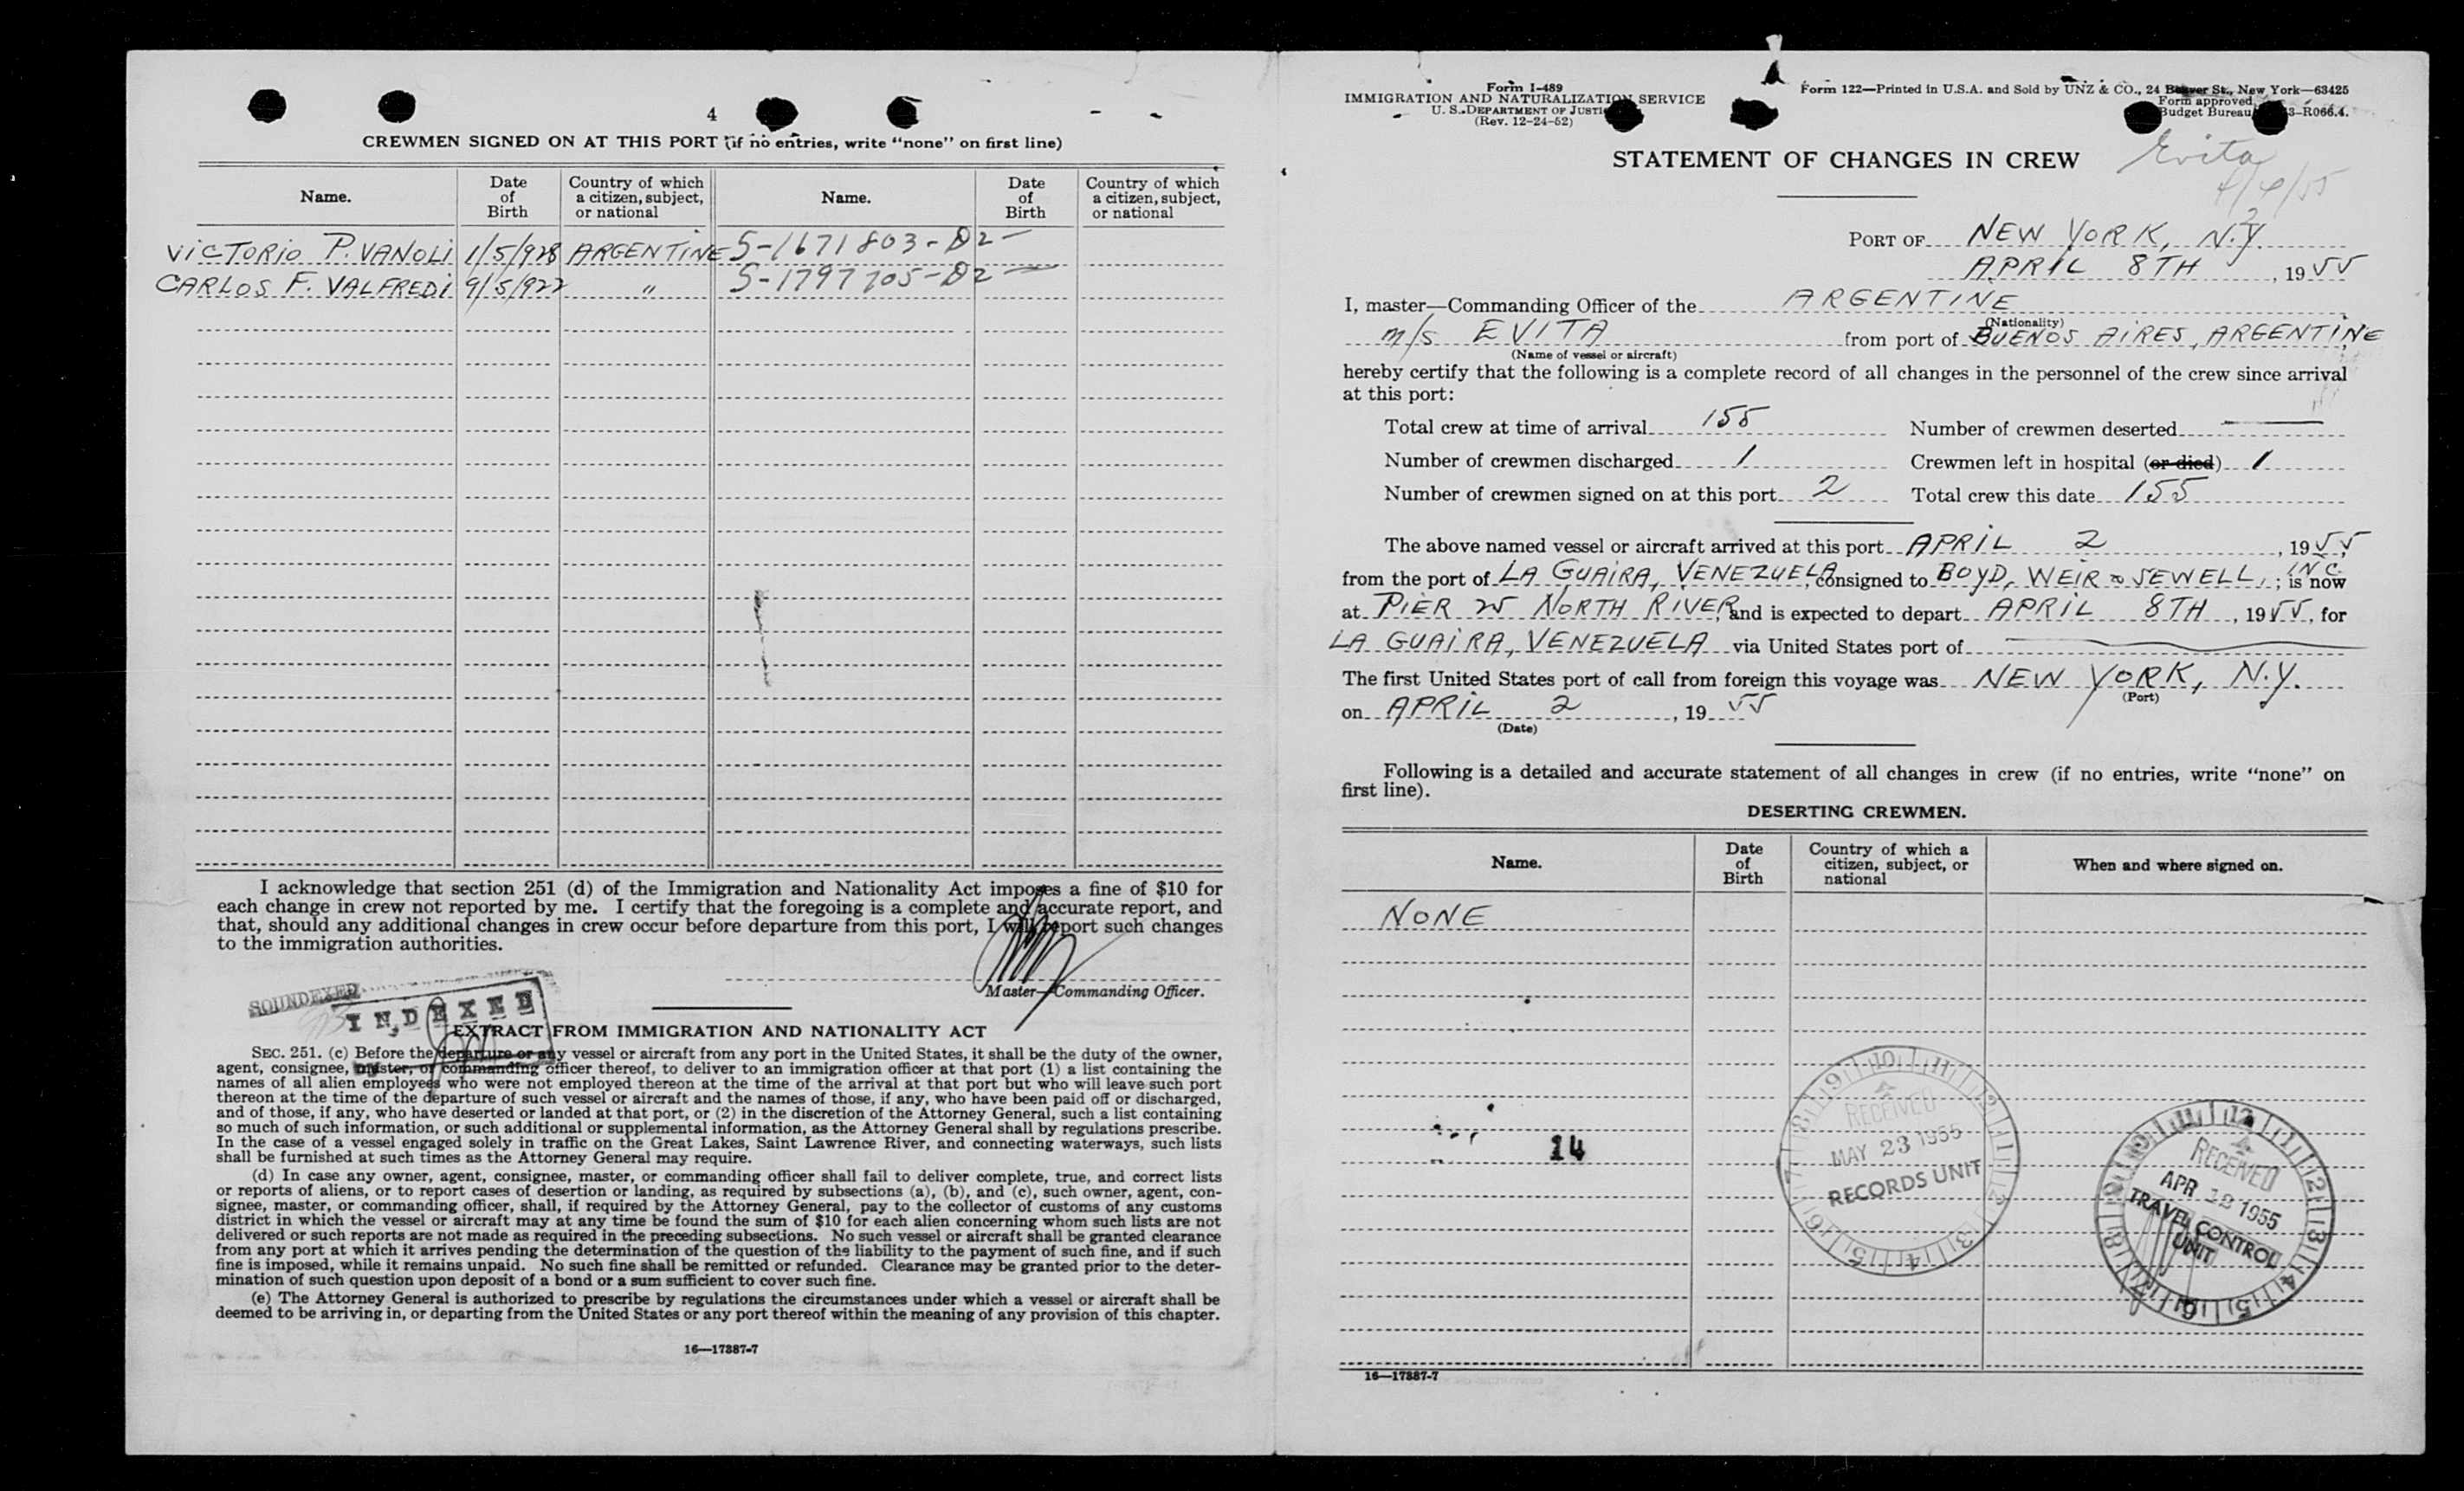 4
CREWMEN SIGNED ON AT THIS PORT (if no entries, write "none" on first line)
Name. Date of Birth Country of which a citizen, subject, or national Name. Date of Birth Country of which a citizen, subject, or national
VICTORIO P. VANOLI 1/5/928 ARGENTINE S-1671803-D2-
CARLOS F. VALFREDI 9/5/922 " S-1797705-D2
I acknowledge that section 251 (d) of the Immigration and Nationality Act imposes a fine of $10 for
each change in crew not reported by me. I certify that the foregoing is a complete and accurate report, and
that, should any additional changes in crew occur before departure from this port, I will report such changes
to the immigration authorities.
Master—Commanding Officer.
SOUNDEXED
INDEXED
EXTRACT FROM IMMIGRATION AND NATIONALITY ACT
SEC. 251. (c) Before the departure or any vessel or aircraft from any port in the United States, it shall be the duty of the owner,
agent, consignee, master, or commanding officer thereof, to deliver to an immigration officer at that port (1) a list containing the
names of all alien employees who were not employed thereon at the time of the arrival at that port but who will leave such port
thereon at the time of the departure of such vessel or aircraft and the names of those, if any, who have been paid off or discharged,
and of those, if any, who have deserted or landed at that port, or (2) in the discretion of the Attorney General, such a list containing
so much of such information, or such additional or supplemental information, as the Attorney General shall by regulations prescribe.
In the case of a vessel engaged solely in traffic on the Great Lakes, Saint Lawrence River, and connecting waterways, such lists
shall be furnished at such times as the Attorney General may require.
(d) In case any owner, agent, consignee, master, or commanding officer shall fail to deliver complete, true, and correct lists
or reports of aliens, or to report cases of desertion or landing, as required by subsections (a), (b), and (c), such owner, agent, con-
signee, master, or commanding officer, shall, if required by the Attorney General, pay to the collector of customs of any customs
district in which the vessel or aircraft may at any time be found the sum of $10 for each alien concerning whom such lists are not
delivered or such reports are not made as required in the preceding subsections. No such vessel or aircraft shall be granted clearance
from any port at which it arrives pending the determination of the question of the liability to the payment of such fine, and if such
fine is imposed, while it remains unpaid. No such fine shall be remitted or refunded. Clearance may be granted prior to the deter-
mination of such question upon deposit of a bond or a sum sufficient to cover such fine.
(e) The Attorney General is authorized to prescribe by regulations the circumstances under which a vessel or aircraft shall be
deemed to be arriving in, or departing from the United States or any port thereof within the meaning of any provision of this chapter.
16—17887-7
Form I-489
IMMIGRATION AND NATURALIZATION SERVICE
U. S. DEPARTMENT OF JUSTI
(Rev. 12-24-52)
Form 122—Printed in U.S.A. and Sold by UNZ & CO., 24 Beaver St., New York—63425
Form approved
Budget Bureau 3-R066.4.
Evita
STATEMENT OF CHANGES IN CREW
PORT OF NEW YORK, N.Y.
APRIL 8TH, 1955
I, master—Commanding Officer of the ARGENTINE
(Nationality)
m/s EVITA from port of BUENOS AIRES, ARGENTINE
(Name of vessel or aircraft)
hereby certify that the following is a complete record of all changes in the personnel of the crew since arrival
at this port:
Total crew at time of arrival 155 Number of crewmen deserted —
Number of crewmen discharged 1 Crewmen left in hospital (or died) 1
Number of crewmen signed on at this port 2 Total crew this date 155
The above named vessel or aircraft arrived at this port APRIL 2, 1955,
from the port of LA GUAIRA, VENEZUELA, consigned to BOYD, WEIR & SEWELL, INC.; is now
at PIER 25 NORTH RIVER, and is expected to depart APRIL 8TH, 1955, for
LA GUAIRA, VENEZUELA via United States port of —
The first United States port of call from foreign this voyage was NEW YORK, N.Y.
(Port)
on APRIL 2, 1955
(Date)
Following is a detailed and accurate statement of all changes in crew (if no entries, write "none" on
first line).
DESERTING CREWMEN.
Name. Date of Birth Country of which a citizen, subject, or national When and where signed on.
NONE
14
RECEIVED
MAY 23 1955
RECORDS UNIT
RECEIVED
APR 12 1955
TRAVEL CONTROL
UNIT
16—17887-7